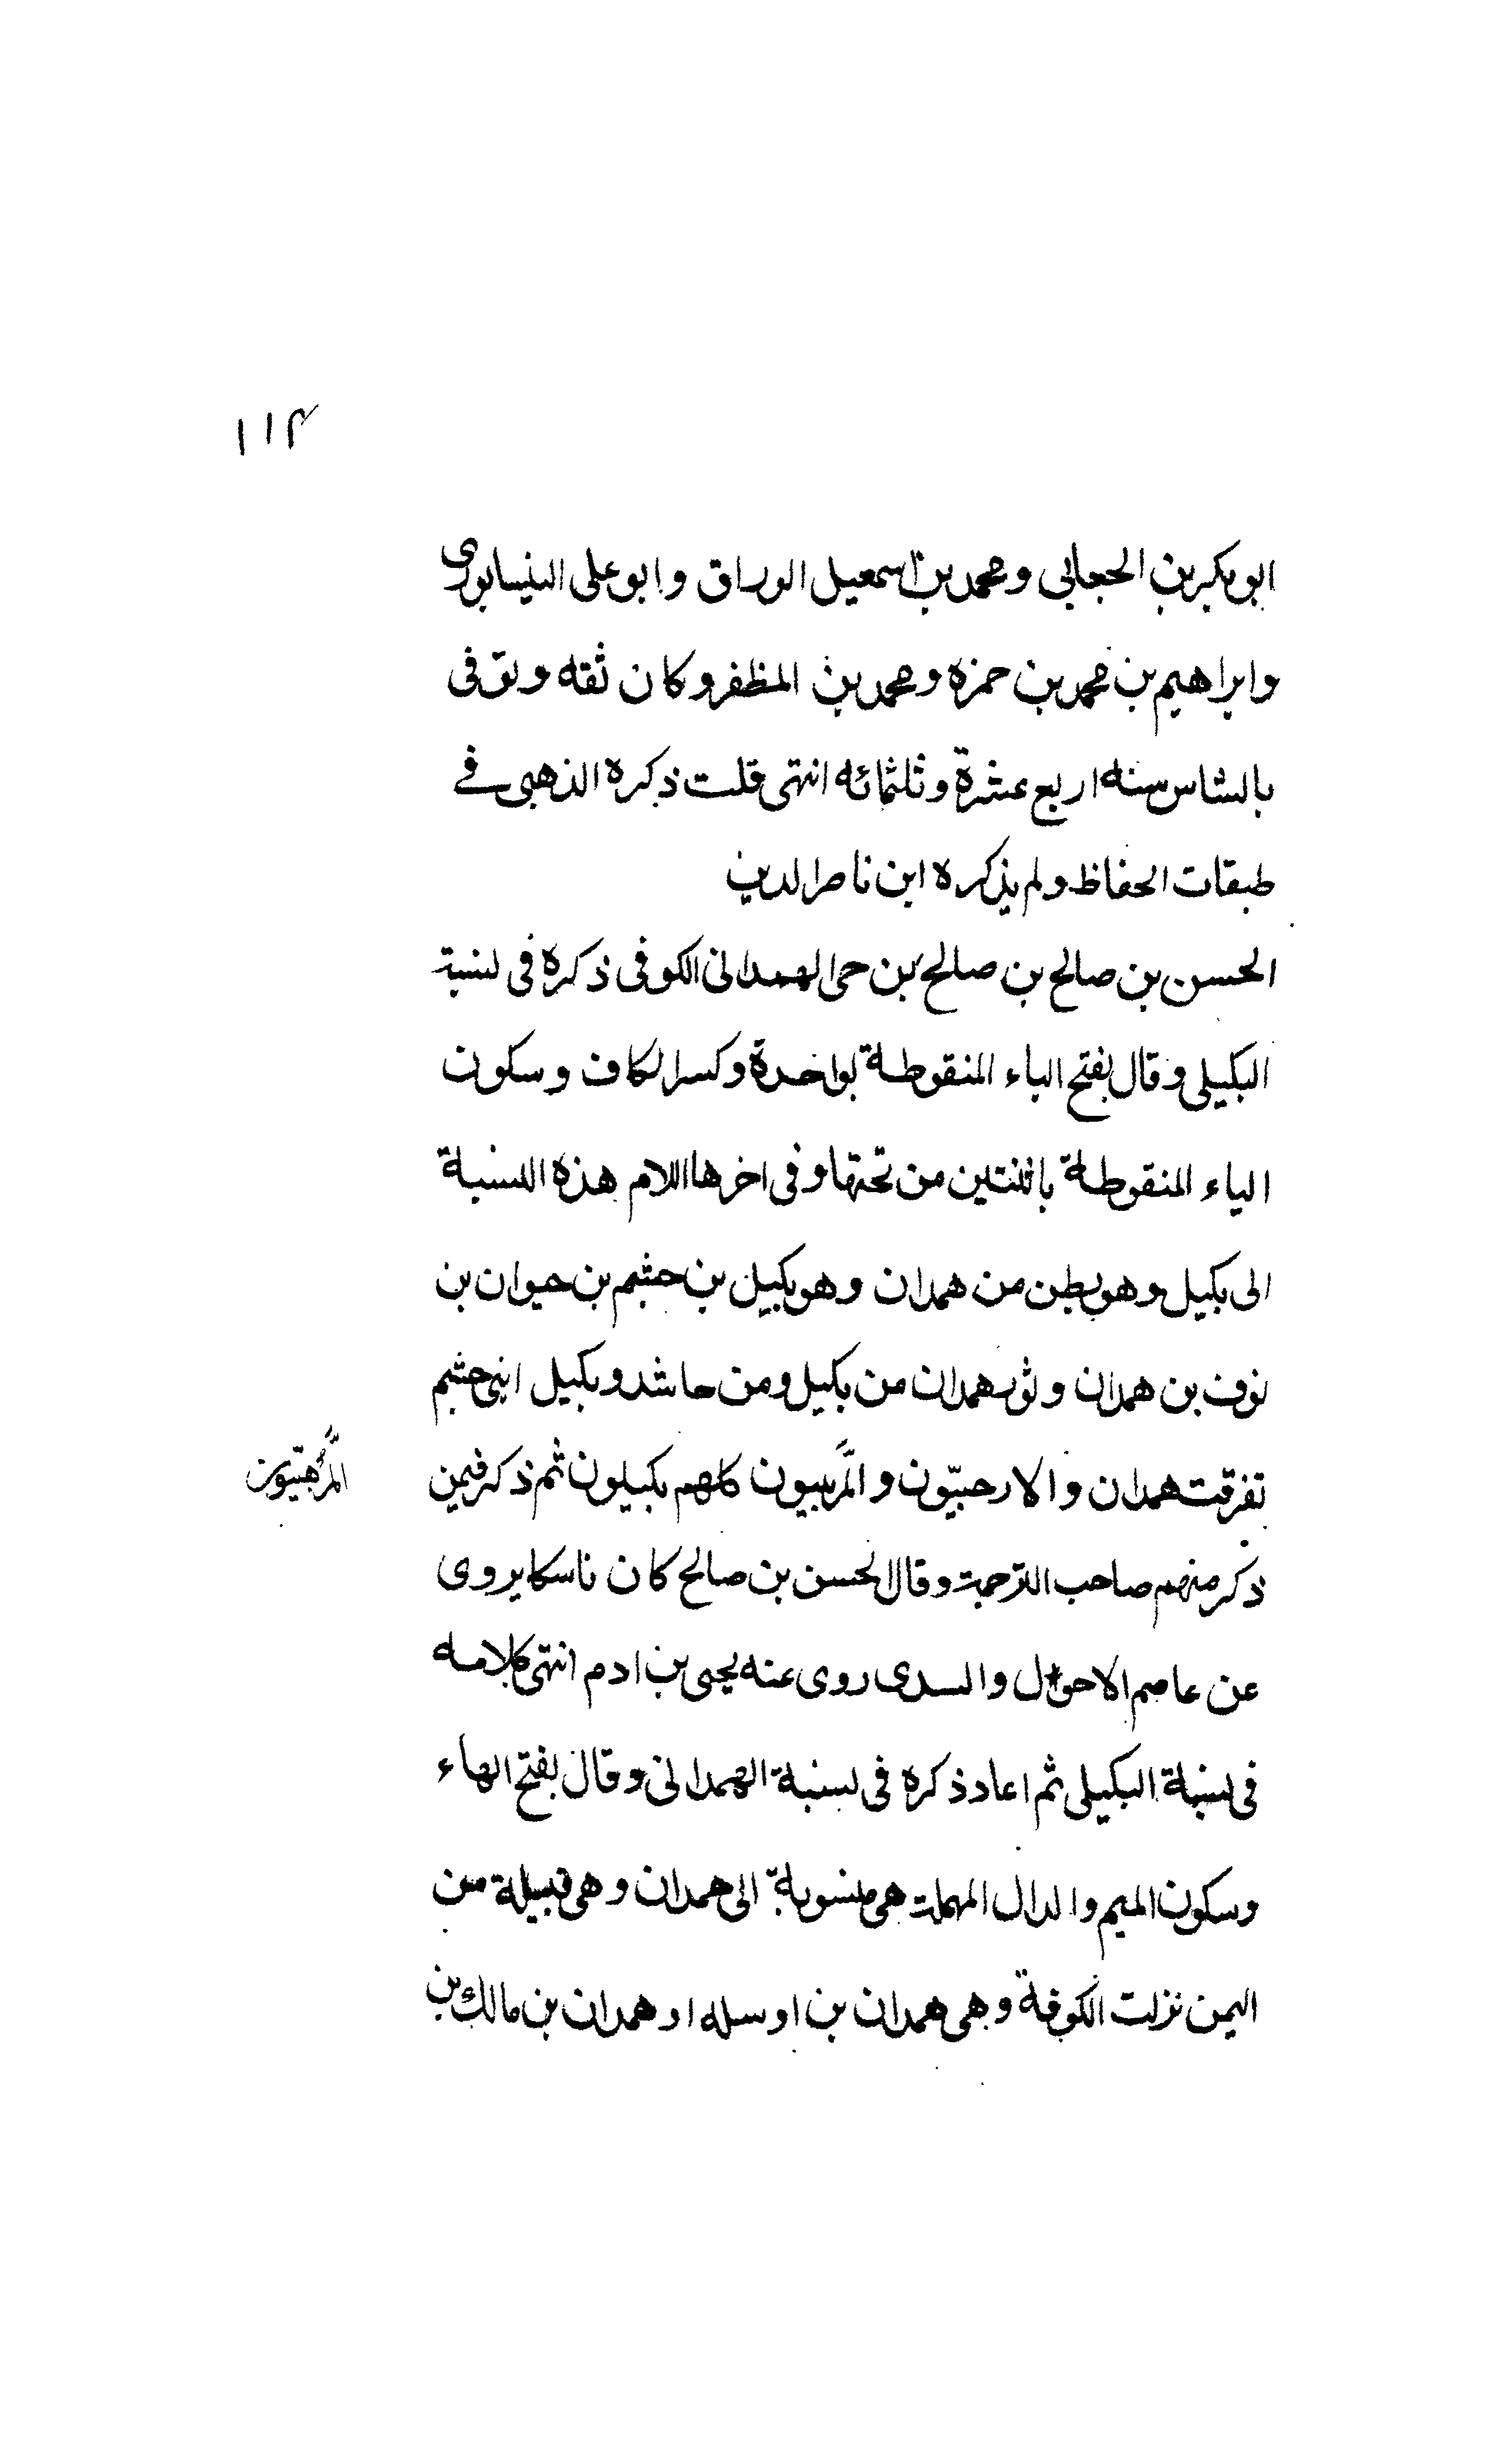 ١١٣
ابو بكر بن الجعابي ومحمد بن اسمعيل الوراق وابو على النيسابورى
وابراهيم بن محمد بن حمزه ومحمد بن المظفر وكان ثقه وتوّفى
بالشاس سنه اربع عشرة وثلثمائه انتهى قلت ذكره الذهبى فے
طبقات الحفاظ ولم يذكره ابن ناصر الدين
الحسن بن صالح بن صالح بن حى الهمدانى الكوفى ذكره فى نسبة
البكيلى وقال بفتح الباء المنقوطة بواحدة وكسر الكاف وسكون
الياء المنقوطة باثنتين من تحتها وفى اخرها اللام هذه النسبة
الى بكيل وهو بطن من همدان وهو بكيل بن جشم بن حيوان بن
نوف بن همدان وثور همدان من بكيل ومن حاشد وبكيل ابنى جشم
تفرقت همدان والارحبيّون و كلهم بكيليون ثم ذكر فيمن
المرّهبيون
ذكر منهم صاحب الترجمة وقال الحسن بن صالح كان ناسكا يروى
عن عاصم الاحول والسدى روى عنه يحيى بن ادم انتهى كلامه
فى نسبة البكيلى ثم اعاد ذكره فى نسبة الهمدانى وقال بفتح الهاء
وسكون الميم والدال المهملة هى منسوبة الى همدان وهى قبيلة من
اليمن نزلت الكوفة وهى همدان بن اوسله او همدان بن مالك بن